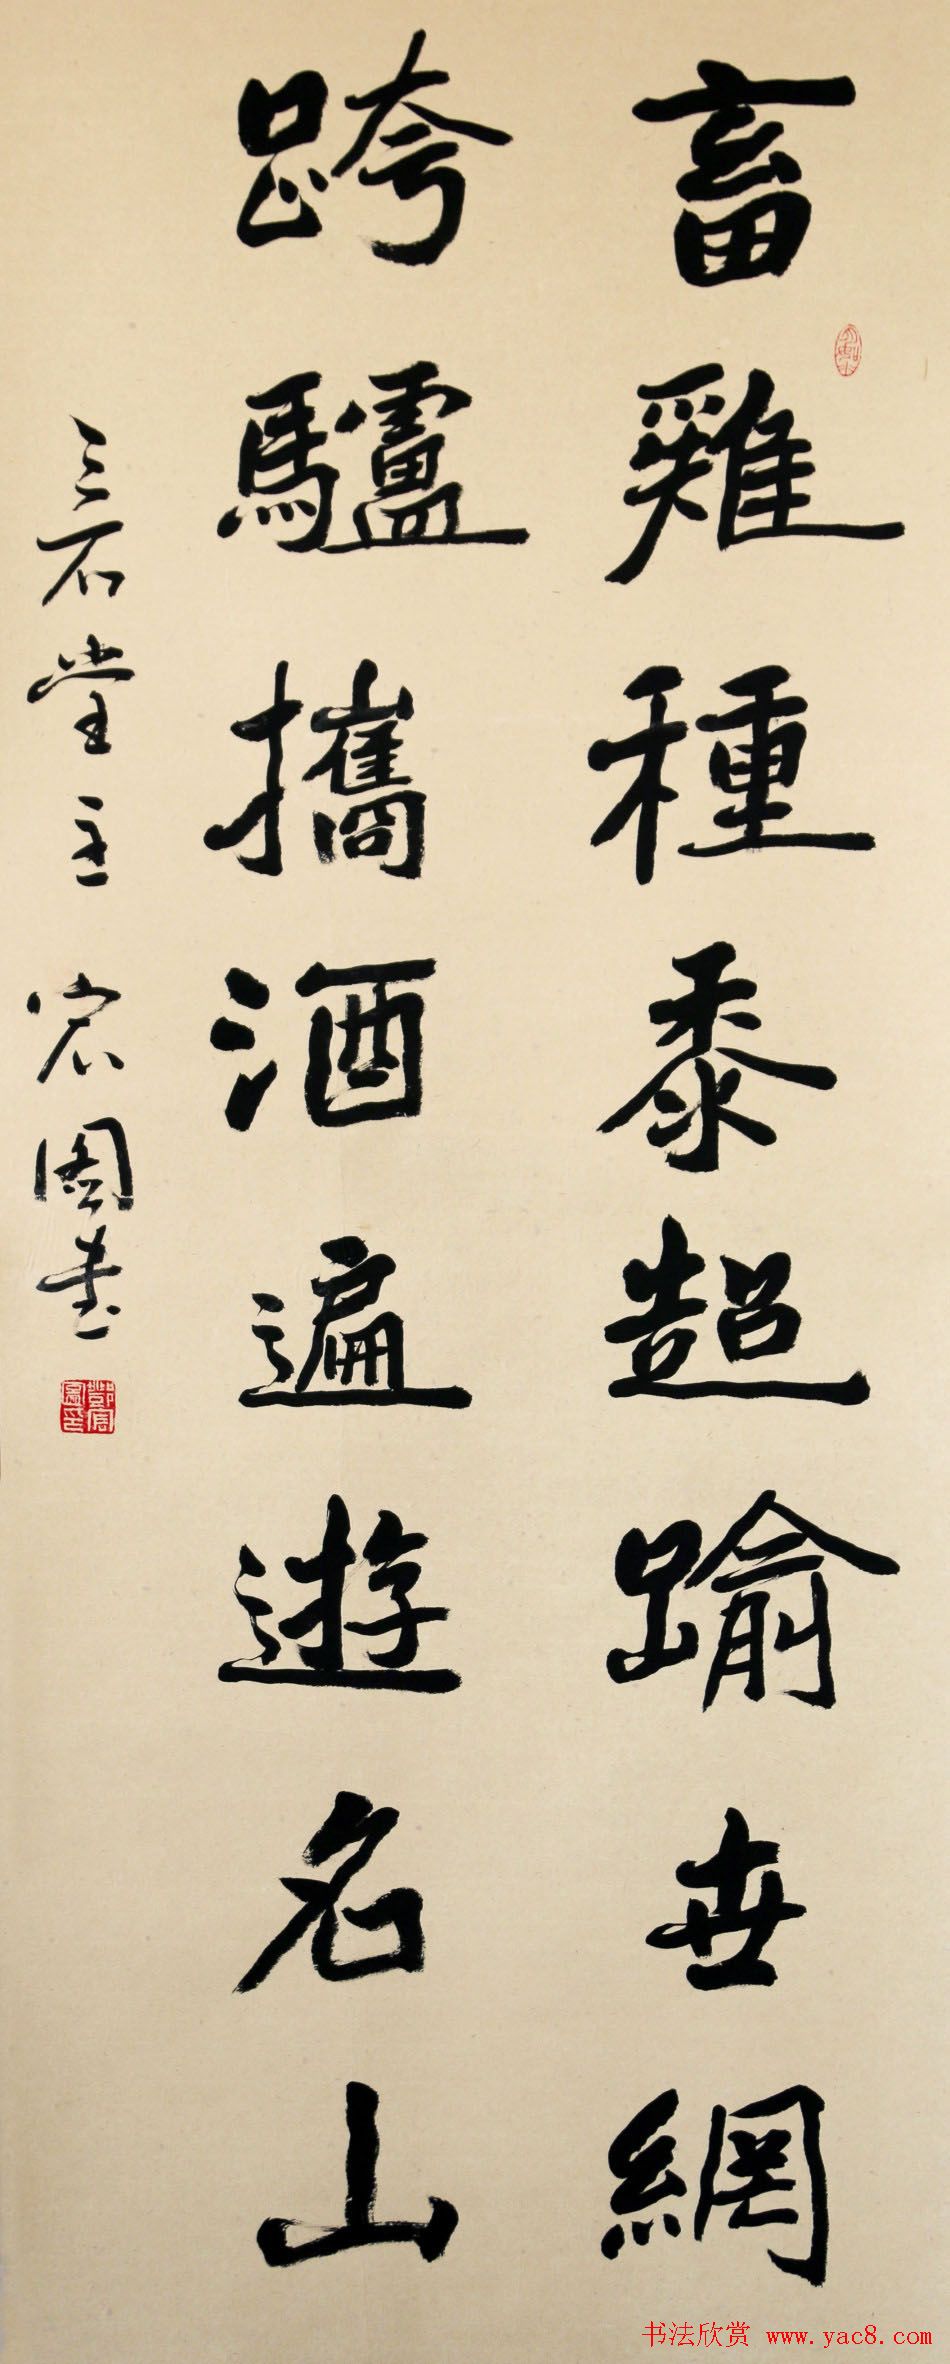 畜雞種黍超踰世網
跨驢攜酒遍遊名山
三石堂主 宏圖書
书法欣赏 www.yac8.com